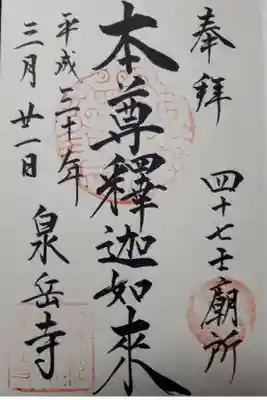 奉拝
四十七士廟所
本尊釋迦如來
平成三十年
三月廿一日
泉岳寺